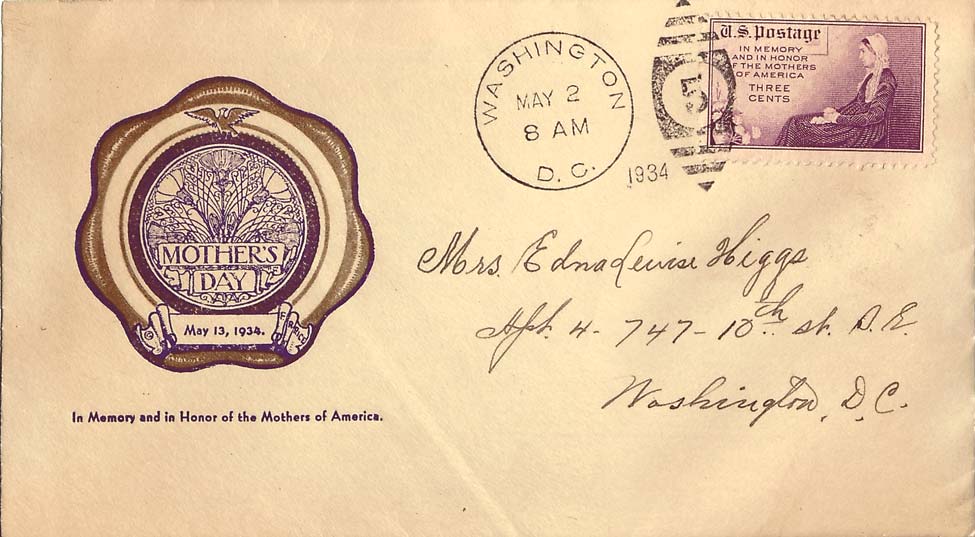 MOTHER'S
DAY
May 13, 1934.
In Memory and in Honor of the Mothers of America.
WASHINGTON
MAY 2
8 AM
D. C.
1934
5
U.S. Postage
IN MEMORY
AND IN HONOR
OF THE MOTHERS
OF AMERICA
THREE
CENTS
Mrs. Edna Lewise Higgs
Apt. 4 - 747 - 10th st. S. E.
Washington, D. C.